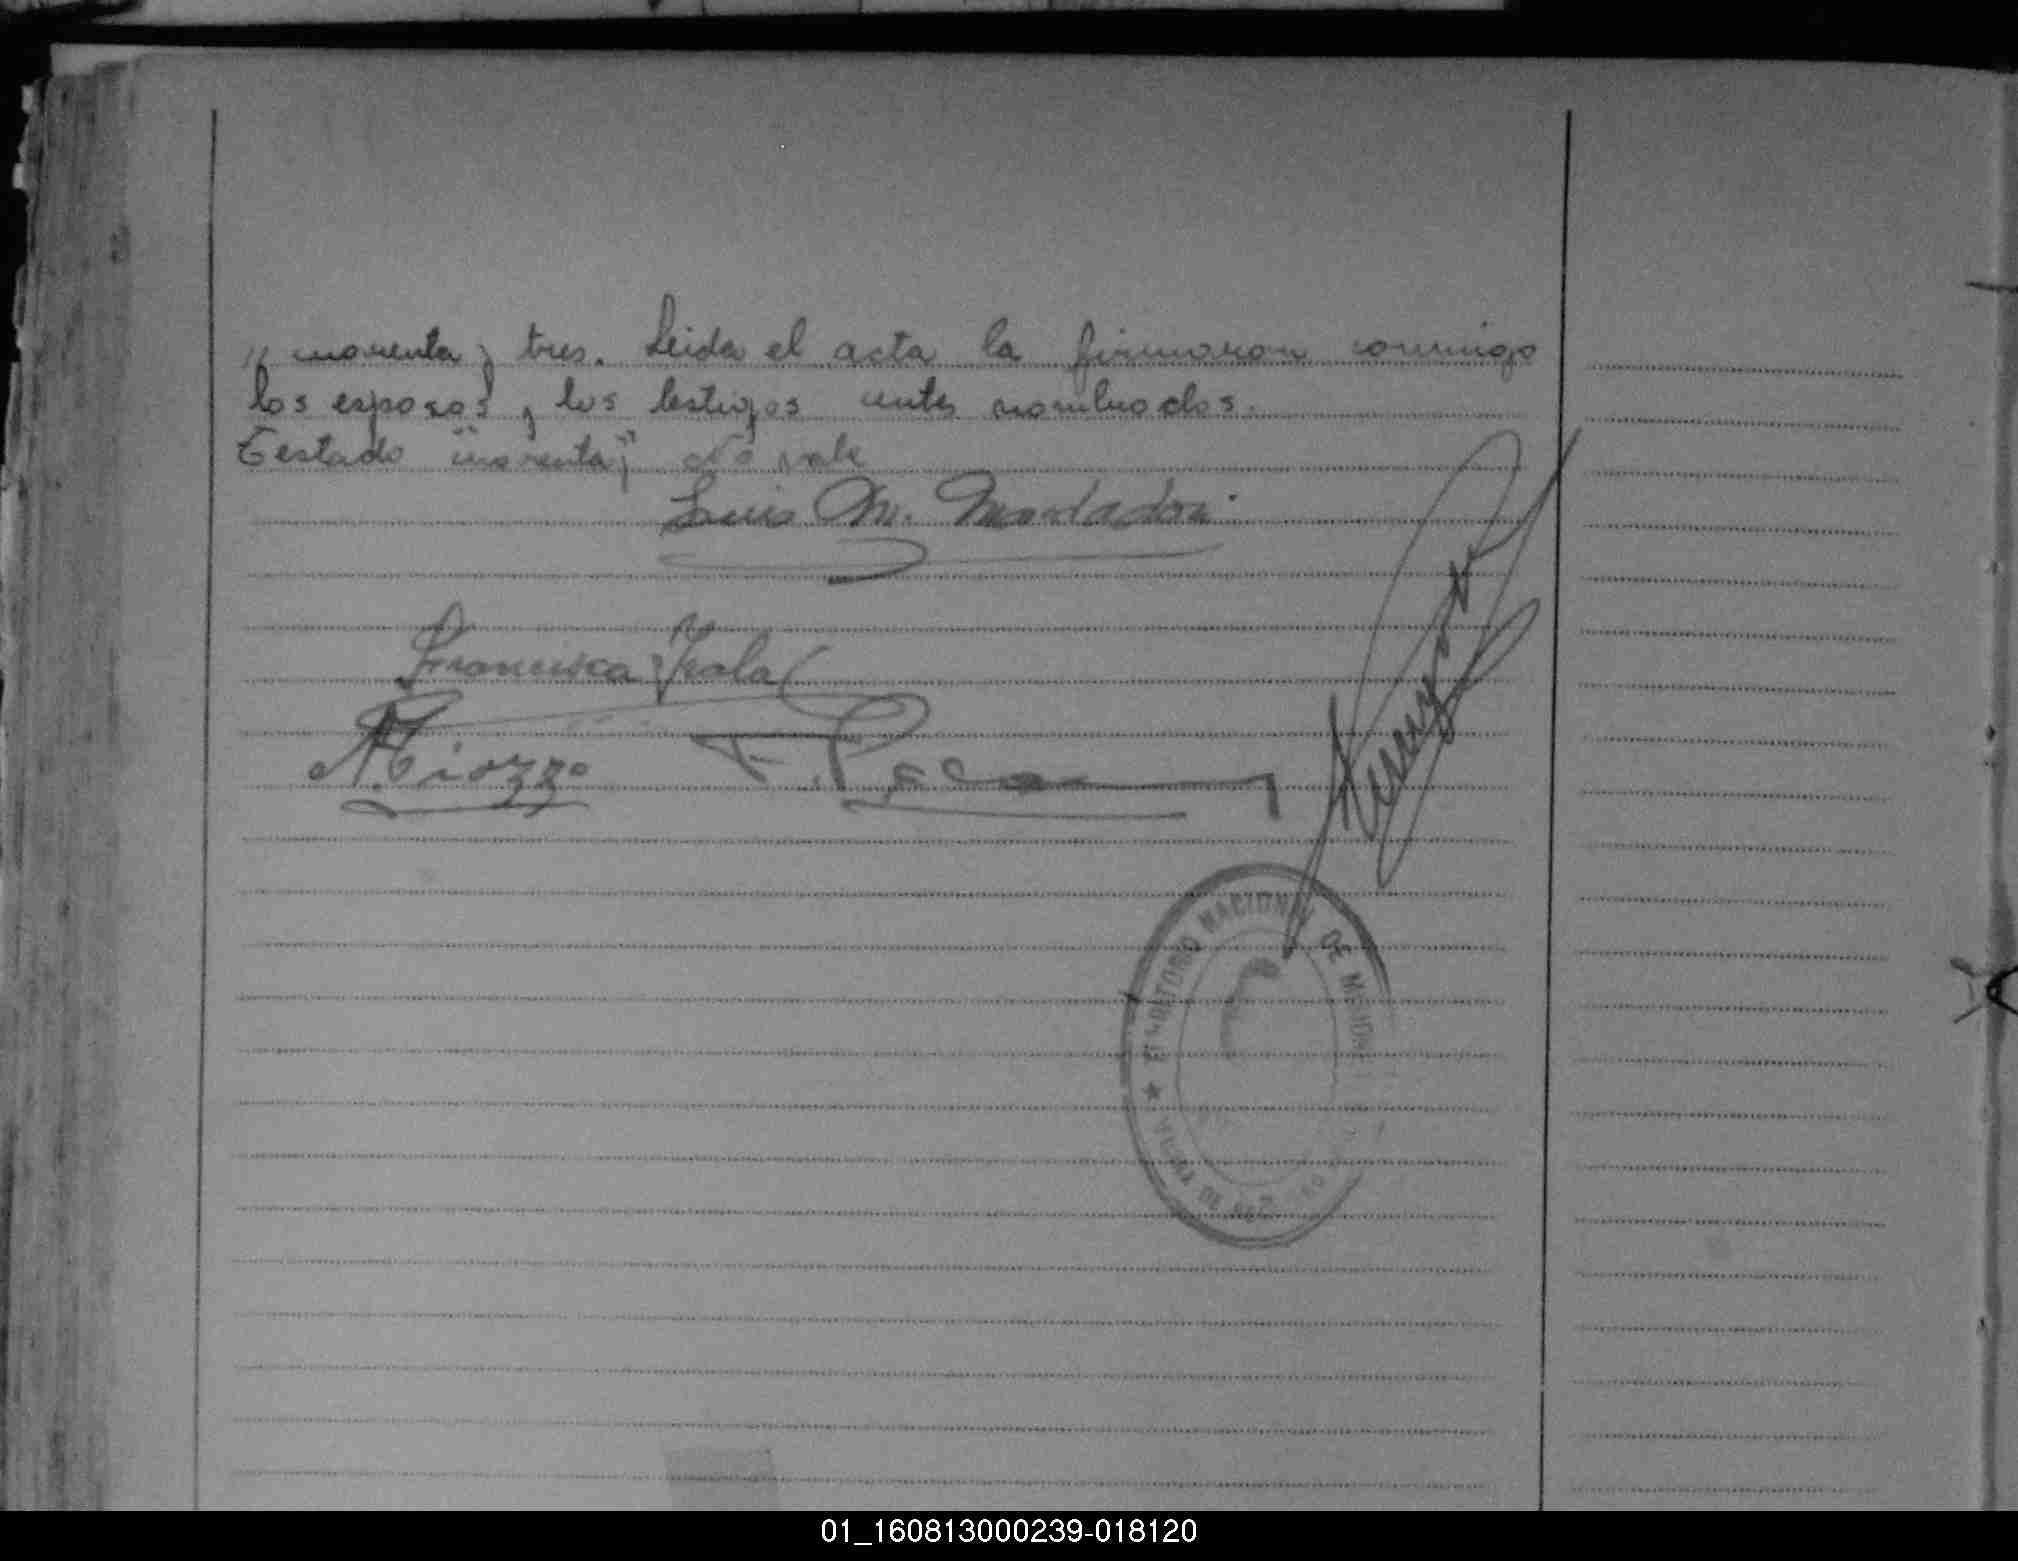 " cuarenta y tres. Leida el acta la firmaron conmigo
los esposos y los testigos antes nombrados.
Testado "cuarenta y" no vale
Luis M.
Francisca Irala
A. Tiozzo
F.
NACIONAL DE
01_160813000239-018120